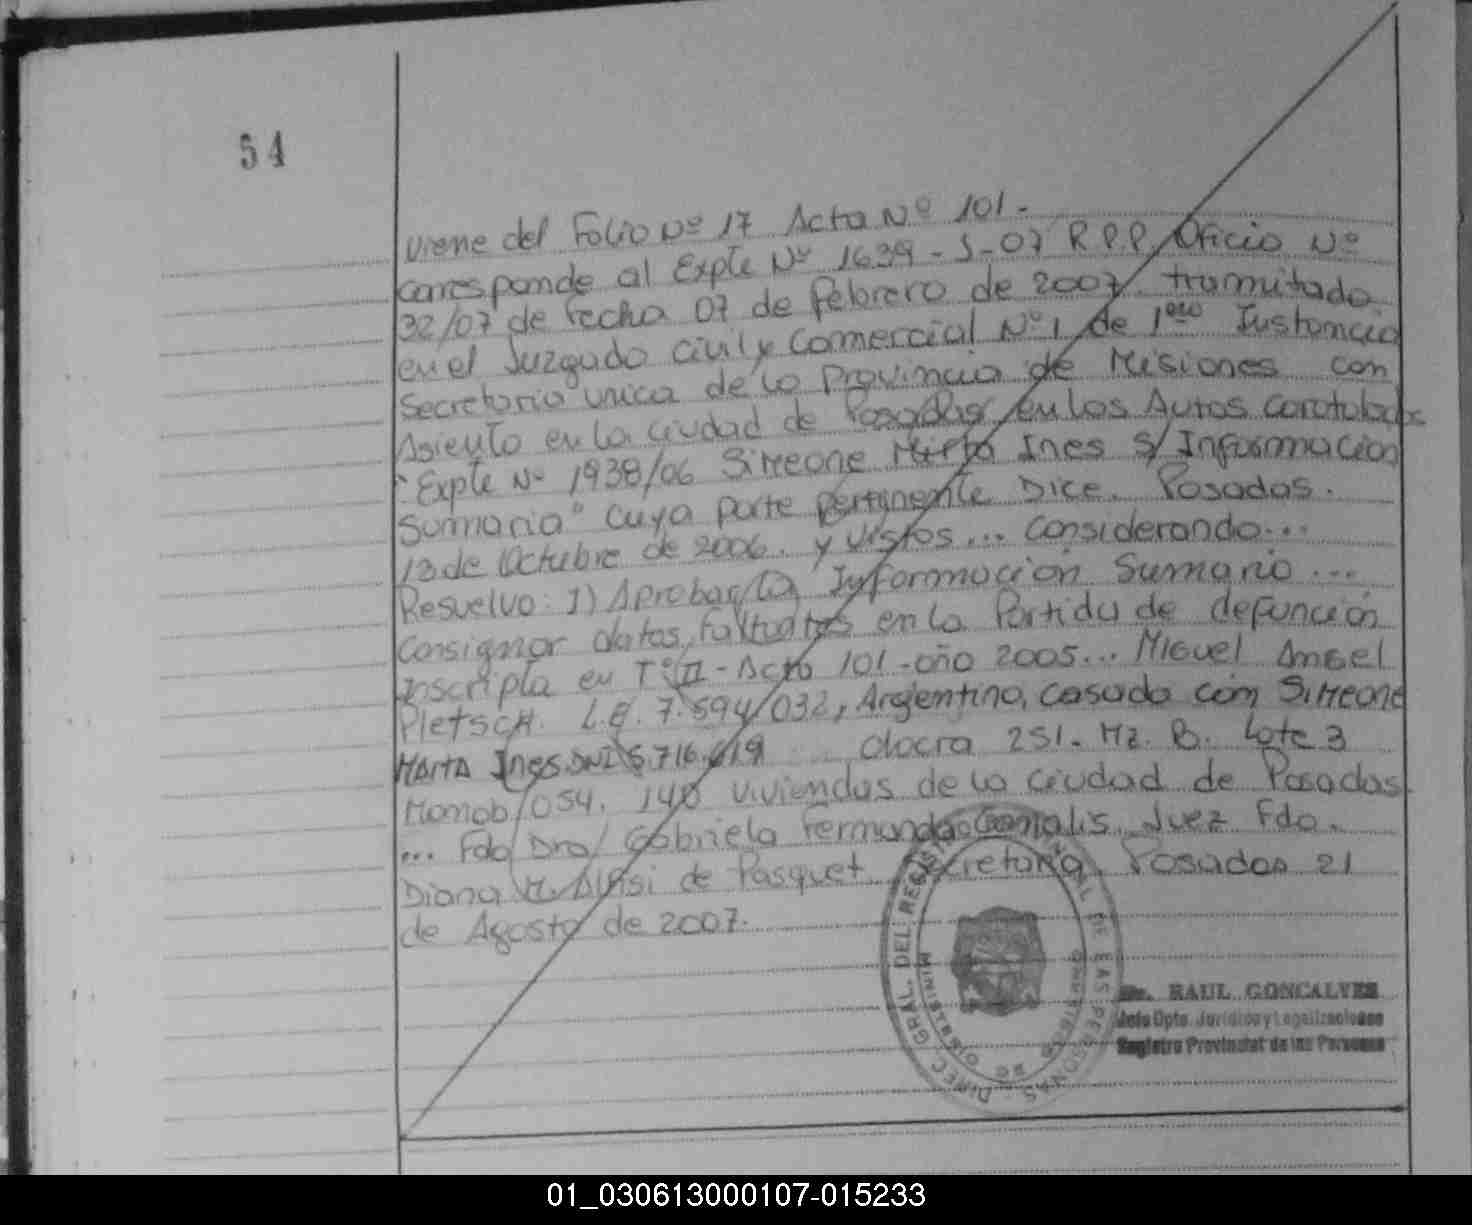 54
Viene del Folio Nº 17 Acta Nº 101.
Corresponde al Expte Nº 1639-S-07 R.P.P. Oficio Nº
32/07 de fecha 07 de febrero de 2007 tramitado
en el Juzgado Civil y Comercial Nº 1 de 1era Instancia
Secretaria unica de la Provincia de Misiones con
Asiento en la ciudad de Posadas en los Autos Caratulados
"Expte Nº 1938/06 Simeone Mirta Ines S/ Informacion
Sumaria" cuya parte pertinente Dice. Posadas.
13 de Octubre de 2006. y vistos... Considerando...
Resuelvo: I) Aprobar la Informacion Sumaria...
Consignar datos faltantes en la Partida de defunción
inscripta en Tº II - Acta 101 - año 2005... Miguel Angel
Pletsch. L.E. 7.594/032, Argentino, casado con Simeone
Marta Ines DNI 5.716.619 chacra 251. Mz. B. Lote 3
Monob/054. 140 viviendas de la ciudad de Posadas
... Fdo Dra/ Gabriela Fernanda Canalis. Juez Fdo.
Diana de Pasquet. Secretaria Posadas 21
de Agosto de 2007.
DIREC. GRAL. DEL REGISTRO PROVINCIAL DE LAS PERSONAS
MINISTERIO DE GOBIERNO
Dr. RAUL GONCALVES
Jefe Dpto. Jurídico y Legalizaciones
Registro Provincial de las Personas
01_030613000107-015233